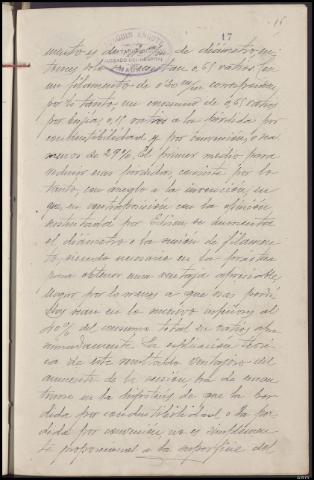 17
mento es de 0'20 m/m de diámetro en-
tonces solo se necesitan 0,65 vatios en
un filamento de 0'20 m/m corresponde,
por lo tanto, un consumo de 0,65 vatios
por bujia, 0,15 vatios a la pérdida por
conductibilidad y por convención, o sea
menos de 29%. El primer medio para
reducir esas pérdidas, consiste por lo
tanto, con arreglo a la invención, en
que, en contraposición con la opinión
sustentada por Edison, se aumente
el diámetro o la sección de filamen-
to, siendo necesario en la práctica
para obtener una ventaja apreciable
llegar por lo menos a que esas pérdi-
das sean en lo nuevo inferiores al
40% del consumo total en vatios apro-
ximadamente. La explicación teóri-
ca de este resultado ventajoso del
aumento de la sección ha de encon-
trarse en la hipótesis de que la pér-
dida por conductibilidad o la pér-
dida por convención, no es simplemen-
te proporcional a la superficie del